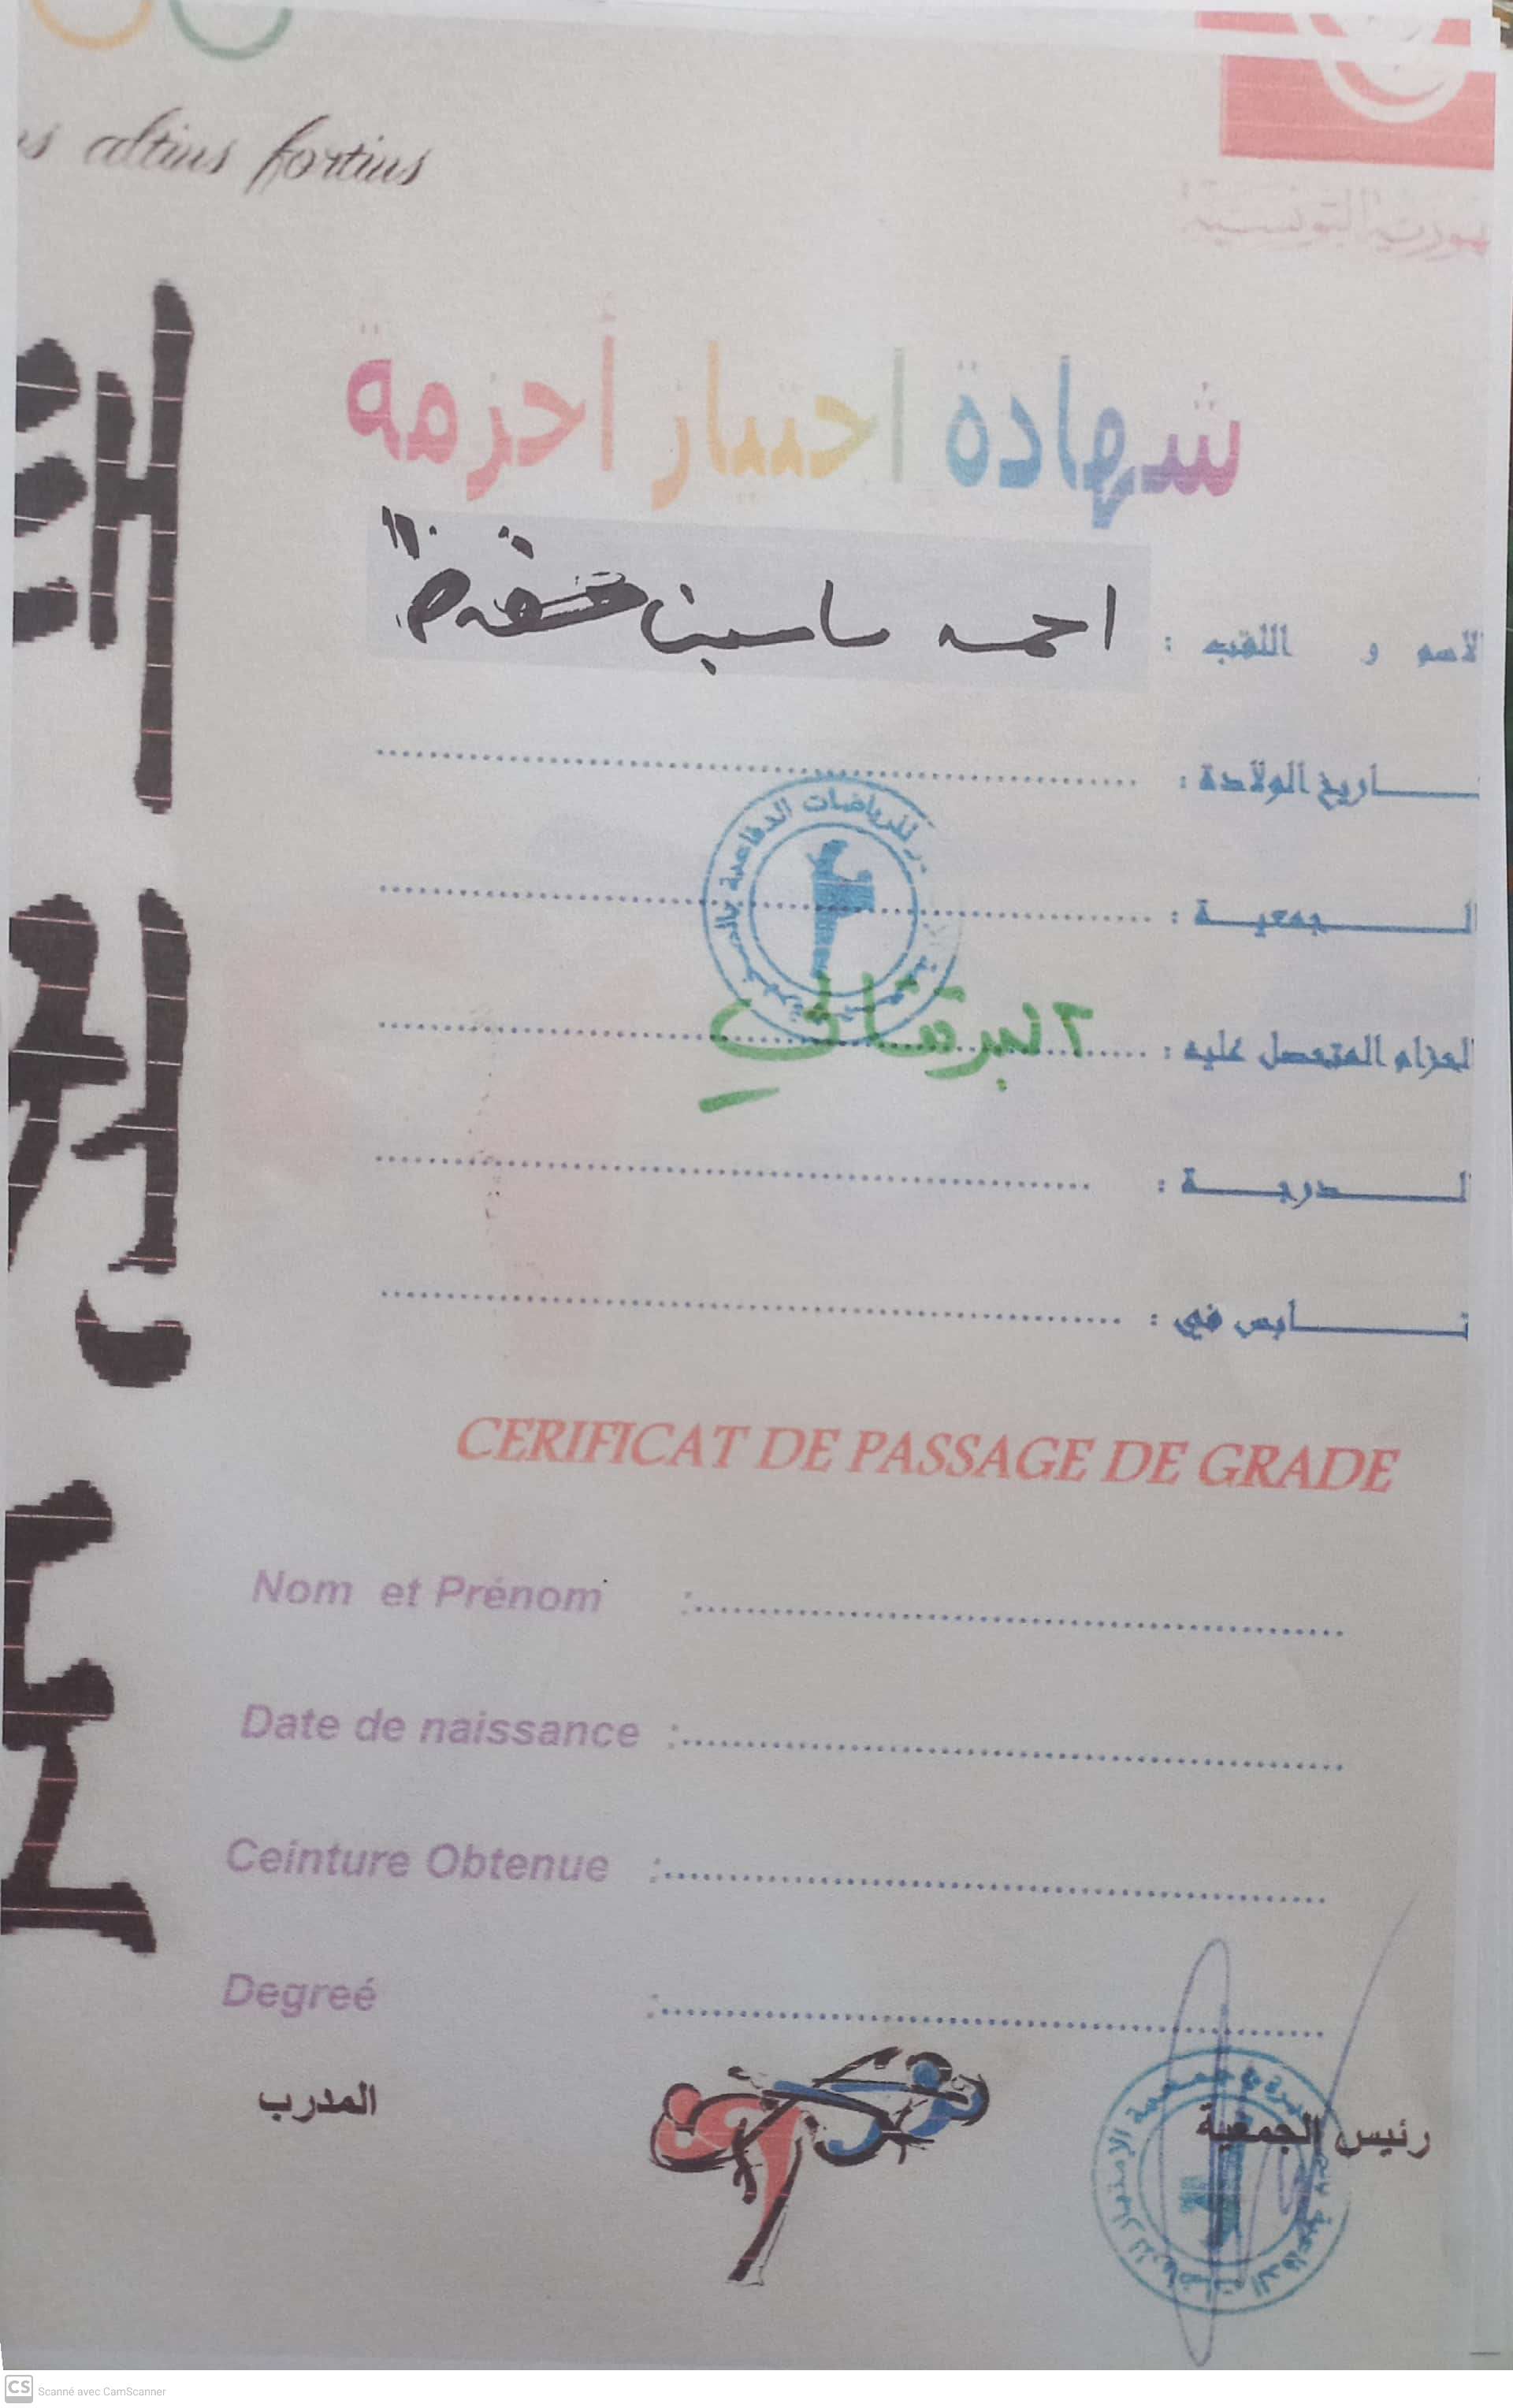 altius fortius
التونسية
شهادة اختيار أحزمة
الاسم و اللقب : احمد ياسين
تاريخ الولادة :
الجمعية :
للرياضات الدفاعية
الحزام المتحصل عليه : البرتقالي
الدرجة :
تابس في :
CERIFICAT DE PASSAGE DE GRADE
Nom et Prénom :
Date de naissance :
Ceinture Obtenue :
Degreé :
المدرب
رئيس الجمعية
태권도
CS Scanné avec CamScanner